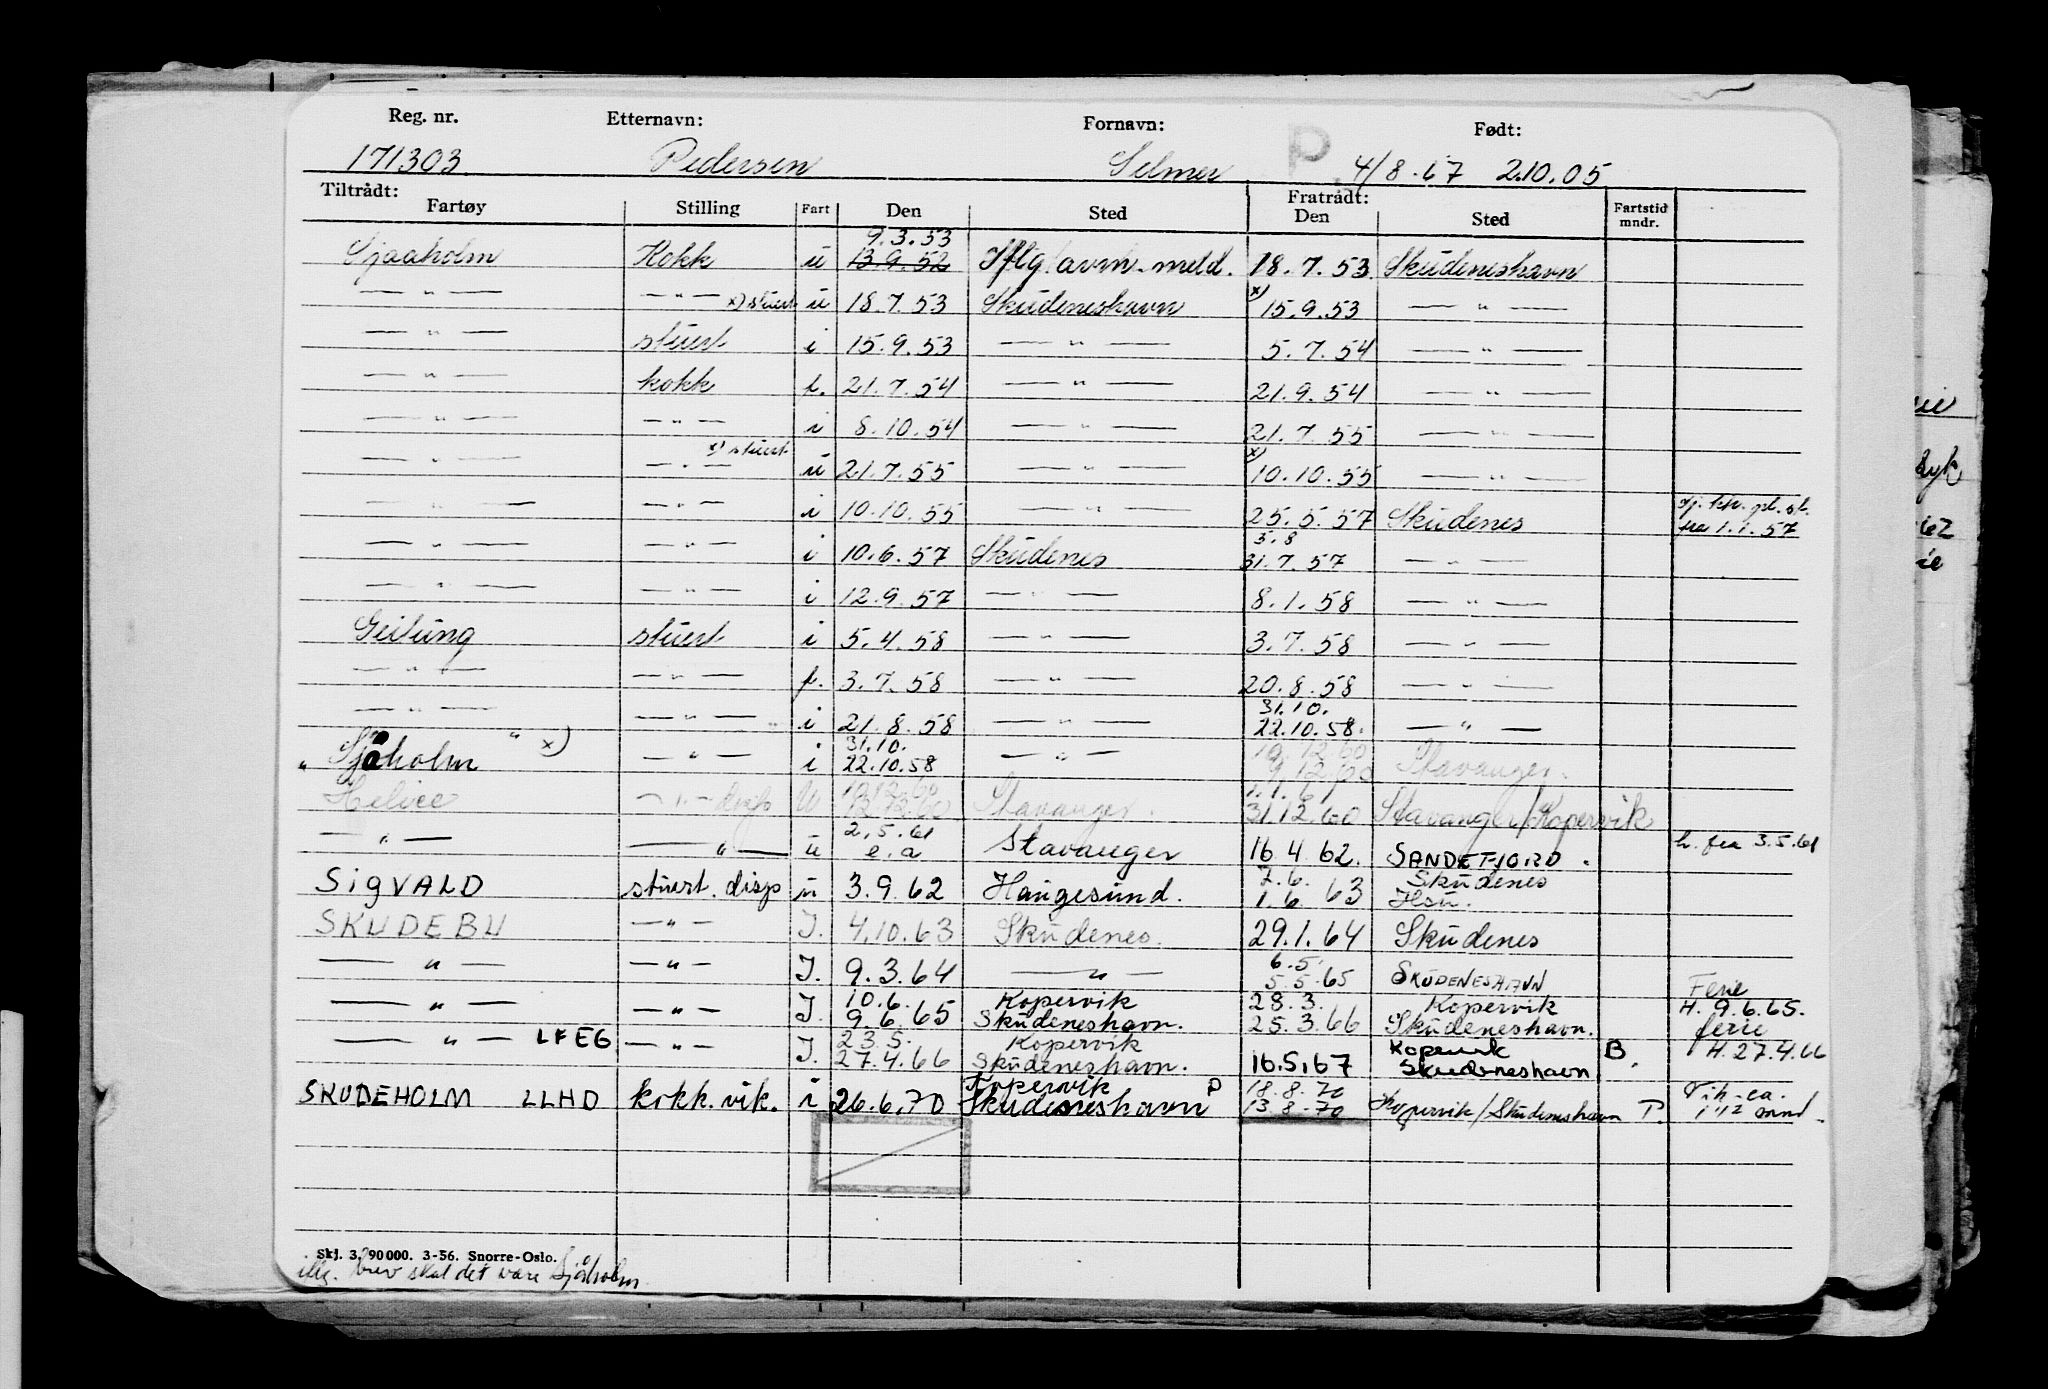 Reg. nr. Etternavn: Fornavn: Født:
171303 Pedersen Selmer P 4/8.67 2.10.05
Tiltrådt: Fratrådt:
Fartøy Stilling Fart Den Sted Den Sted Fartstid mndr.
9.3.53
Sjaaholm Kokk u 13.9.52 Iflg. avm. meld. 18.7.53 Skudeneshavn
— " — — " — x) stuert u 18.7.53 Skudeneshavn x) 15.9.53 — " —
— " — stuert i 15.9.53 — " — 5.7.54 — " —
— " — kokk f. 21.7.54 — " — 21.9.54 — " —
— " — — " — i 8.10.54 — " — 21.7.55 — " —
— " — — " — x) stuert u 21.7.55 — " — x) 10.10.55 — " —
— " — — " — i 10.10.55 — " — 25.5.57 Skudenes fra 1.1.57
5.8
— " — — " — i 10.6.57 Skudenes 31.7.57 — " —
— " — — " — i 12.9.57 — " — 8.1.58 — " —
Geitung stuert i 5.4.58 — " — 3.7.58 — " —
— " — — " — f. 3.7.58 — " — 20.8.58 — " —
31.10.
— " — — " — i 21.8.58 — " — 22.10.58. — " —
31.10. 19.12.60
" Sjøholm " x) — " — i 22.10.58 — " — 9.12.60 Stavanger.
1.1.61
— " — disp U Stavanger. 31.12.60 Stavanger/Kopervik
2.5.61
— " — — " — u e.a Stavanger 16.4.62. SANDEFJORD. h. fra 3.5.61
2.6. Skudenes
SIGVALD stuert. disp u 3.9.62 Haugesund. 1.6.63 Hsu.
SKUDEBU — " — I. 4.10.63 Skudenes. 29.1.64 Skudenes
6.5.
— " — — " — I. 9.3.64 — " — 5.5.65 SKUDENESHAVN Ferie
10.6. Kopervik 28.3. Kopervik H. 9.6.65.
— " — — " — I. 9.6.65 Skudeneshavn. 25.3.66 Skudeneshavn. ferie
23.5. Kopervik Kopervik
— " — LFEG — " — I. 27.4.66 Skudeneshavn. 16.5.67 Skudeneshavn B. H. 27.4.66
Kopervik P 18.8.70 Vik. ca.
SKUDEHOLM LLHD kokk. vik. i 26.6.70 Skudeneshavn 13.8.70 Kopervik/Skudeneshavn P. 1 1/2 mnd.
Skj. 3. 90 000. 3-56. Snorre-Oslo.
iflg. brev skal det være Sjøholm